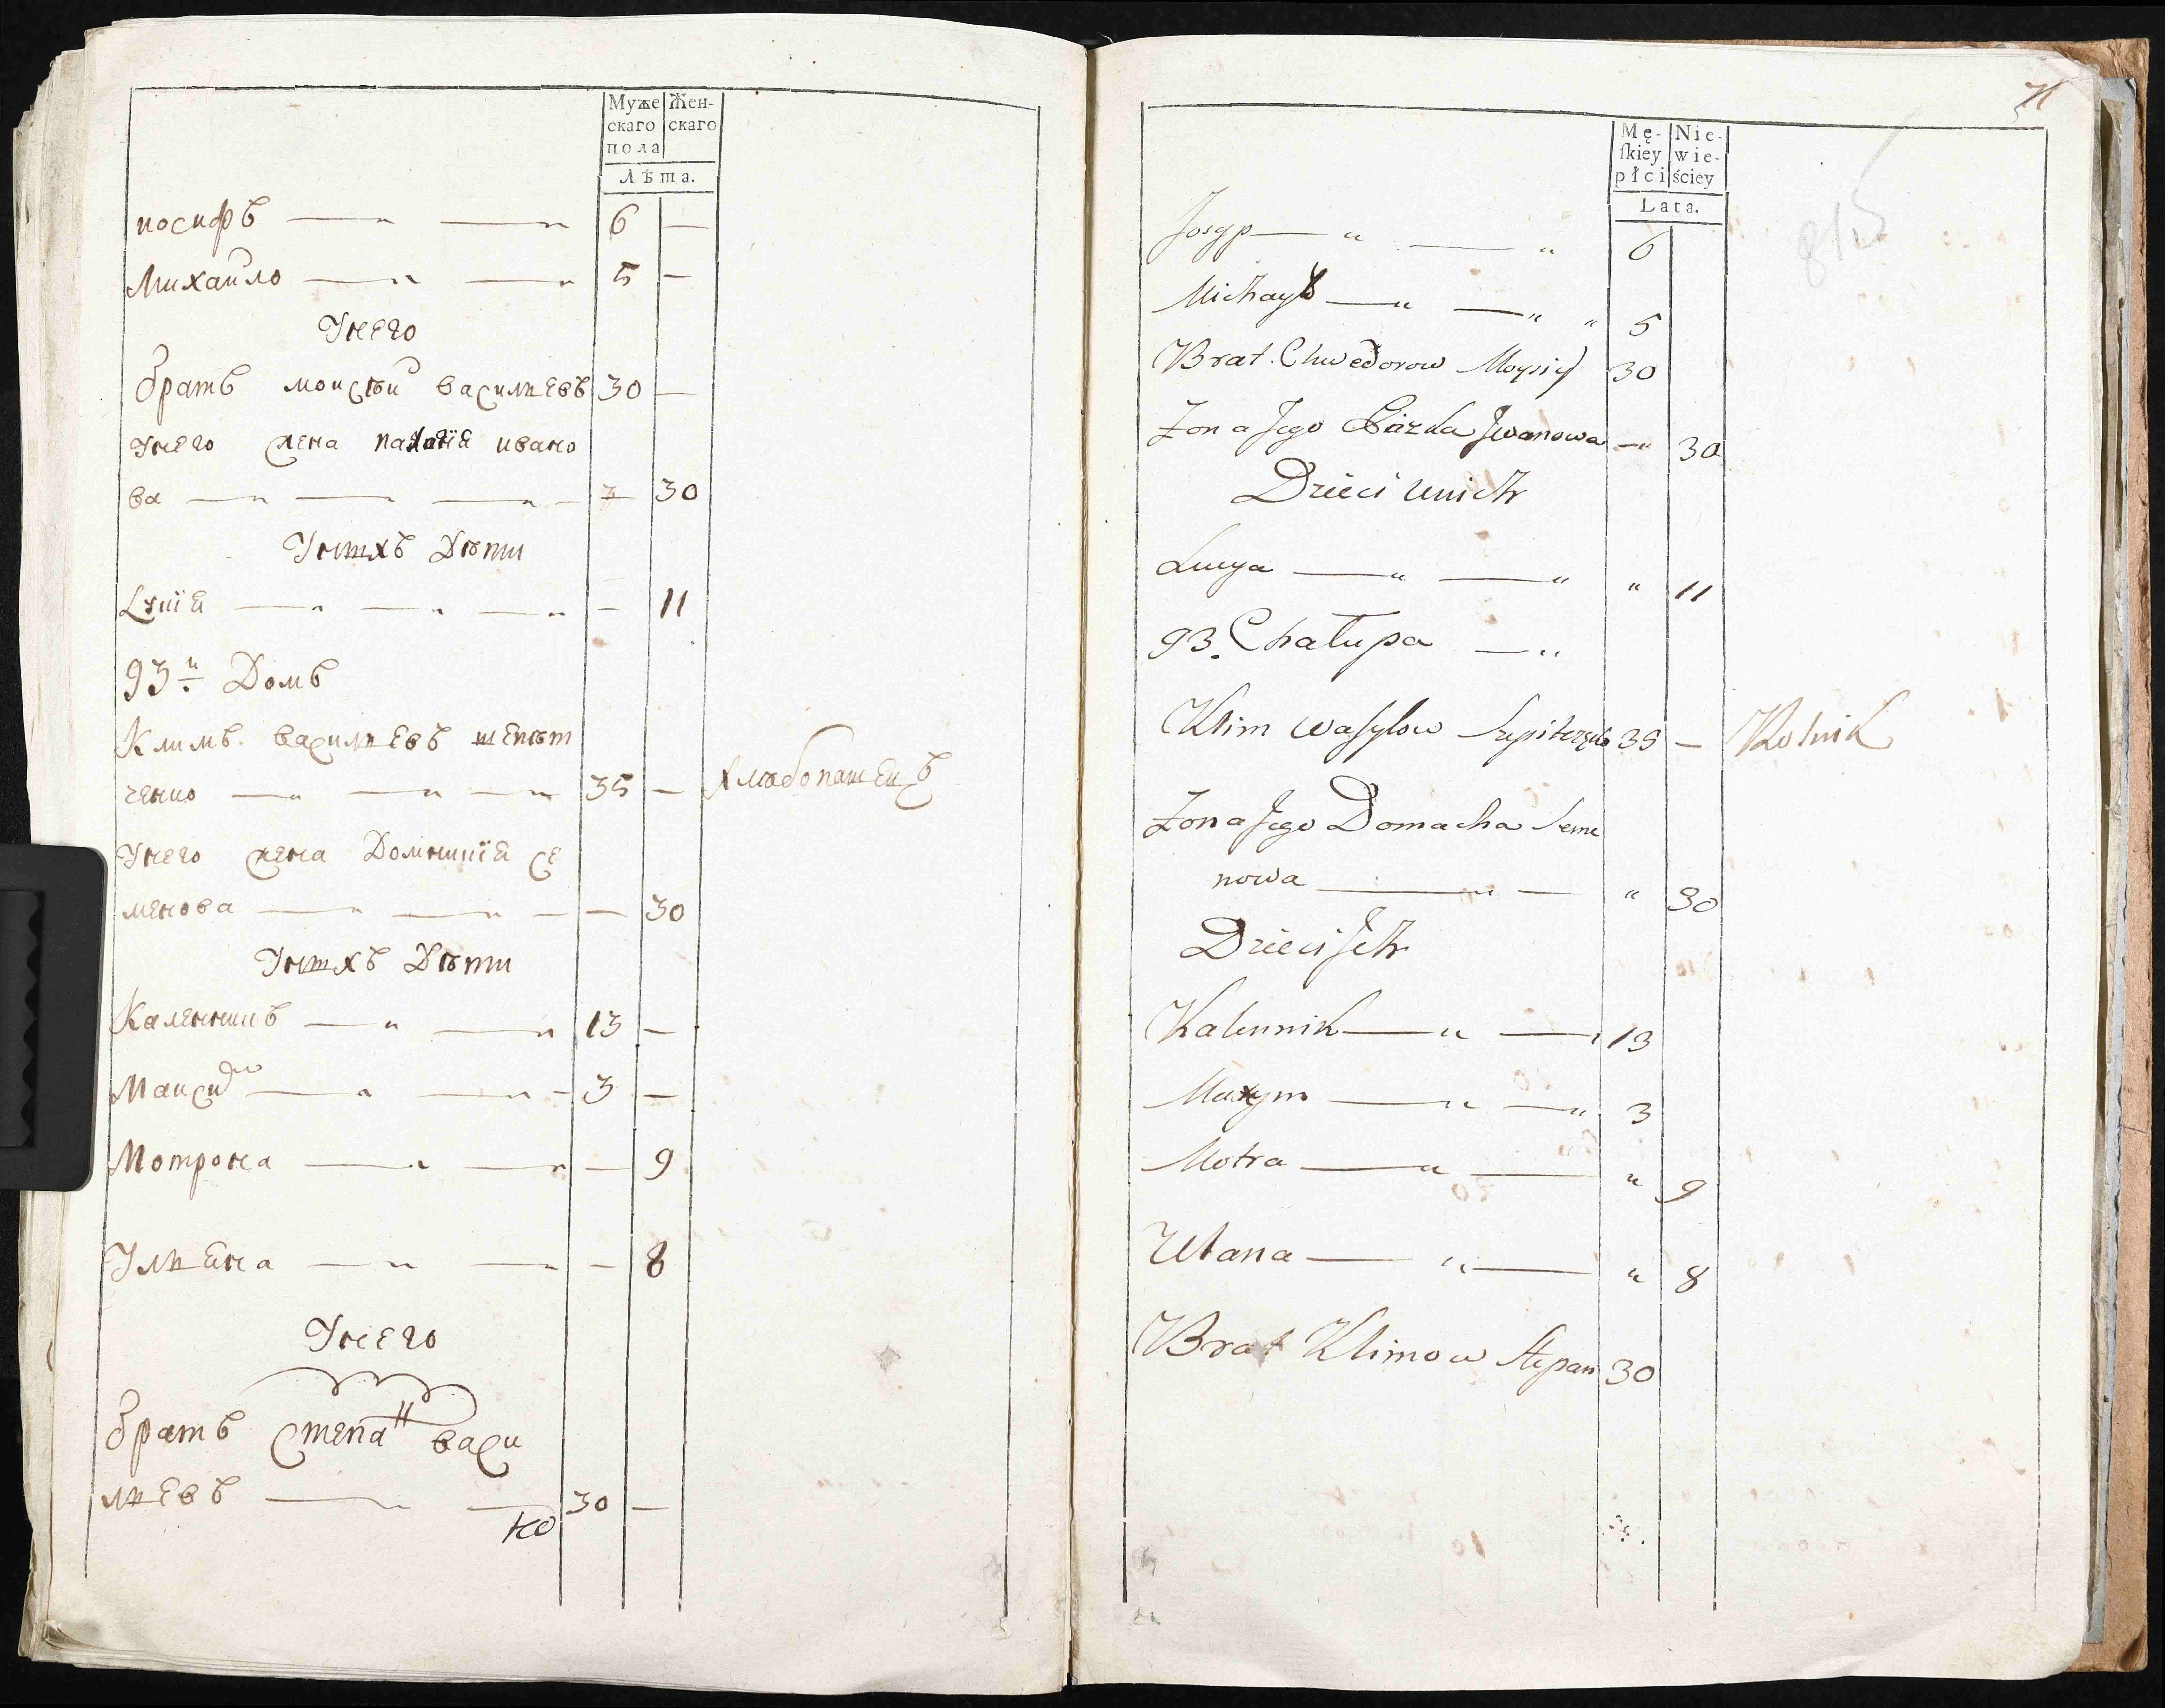 Муже Жен-
скаго скаго
пола
Лѣта.
иосифъ — „ — „ 6 —
Михайло — „ — „ 5 —
Унего
братъ моисѣй васильевъ 30 —
унего жена палагія ивано
ва — „ — „ — „ — — 30
Унихъ Дѣти
— „ — „ — „ — 11
93й Домъ
Климъ васильевъ шепѣт
ченко — „ — „ — „ 35 — хлѣбопашецъ
Унего жена Домникія се
менова — „ — „ — — 30
Унихъ Дѣти
Каленникъ — „ — „ 13 —
Максим — „ — „ — 3 —
Мотрона — „ — „ — 9
Ульяна — „ — „ — 8
Унего
братъ степанъ васи
льевъ — „ — 30 —
но
71
Mę- Nie-
ſkiey wie-
płci ściey
Lata.
815
Josyp — „ — „ 6
Michayło — „ — „ „ 5
Brat Chwedorow Moysiy 30
Zona Jego Iwanowa — „ 30
Dzieci unich
Łucya — „ — „ „ 11
93. Chałupa — „
Klim Wasylow 35 — Rolnik
Zona Jego Domacha Seme
nowa — „ — „ 30
Dzieci Jch
Kalennik — „ — „ 13
Maxym — „ — „ 3
Motra — „ — „ 9
Ulana — „ — „ 8
Brat Klimow Stepan 30